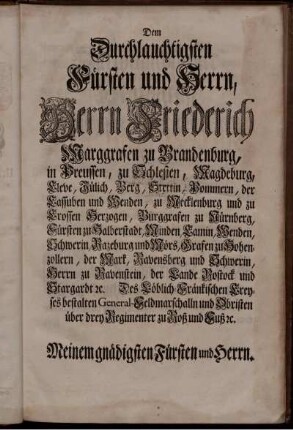 Dem
Durchlauchtigsten
Fürsten und Herrn,
Herrn Friederich
Marggrafen zu Brandenburg,
in Preussen, zu Schlesien, Magdeburg,
Cleve, Jülich, Berg, Stettin, Pommern, der
Cassuben und Wenden, zu Mecklenburg und zu
Crossen Herzogen, Burggrafen zu Nürnberg,
Fürsten zu Halberstadt, Minden, Camin, Wenden,
Schwerin, Razeburg und Mörs, Grafen zu Hohen-
zollern, der Mark, Ravensberg und Schwerin,
Herrn zu Ravenstein, der Lande Rostock und
Stargardt ꝛc. Des Löblich-Fränkischen Crey-
ses bestalten General-Feldmarschalln und Obristen
über drey Regimenter zu Roß und Fuß ꝛc.
Meinem gnädigsten Fürsten und Herrn.